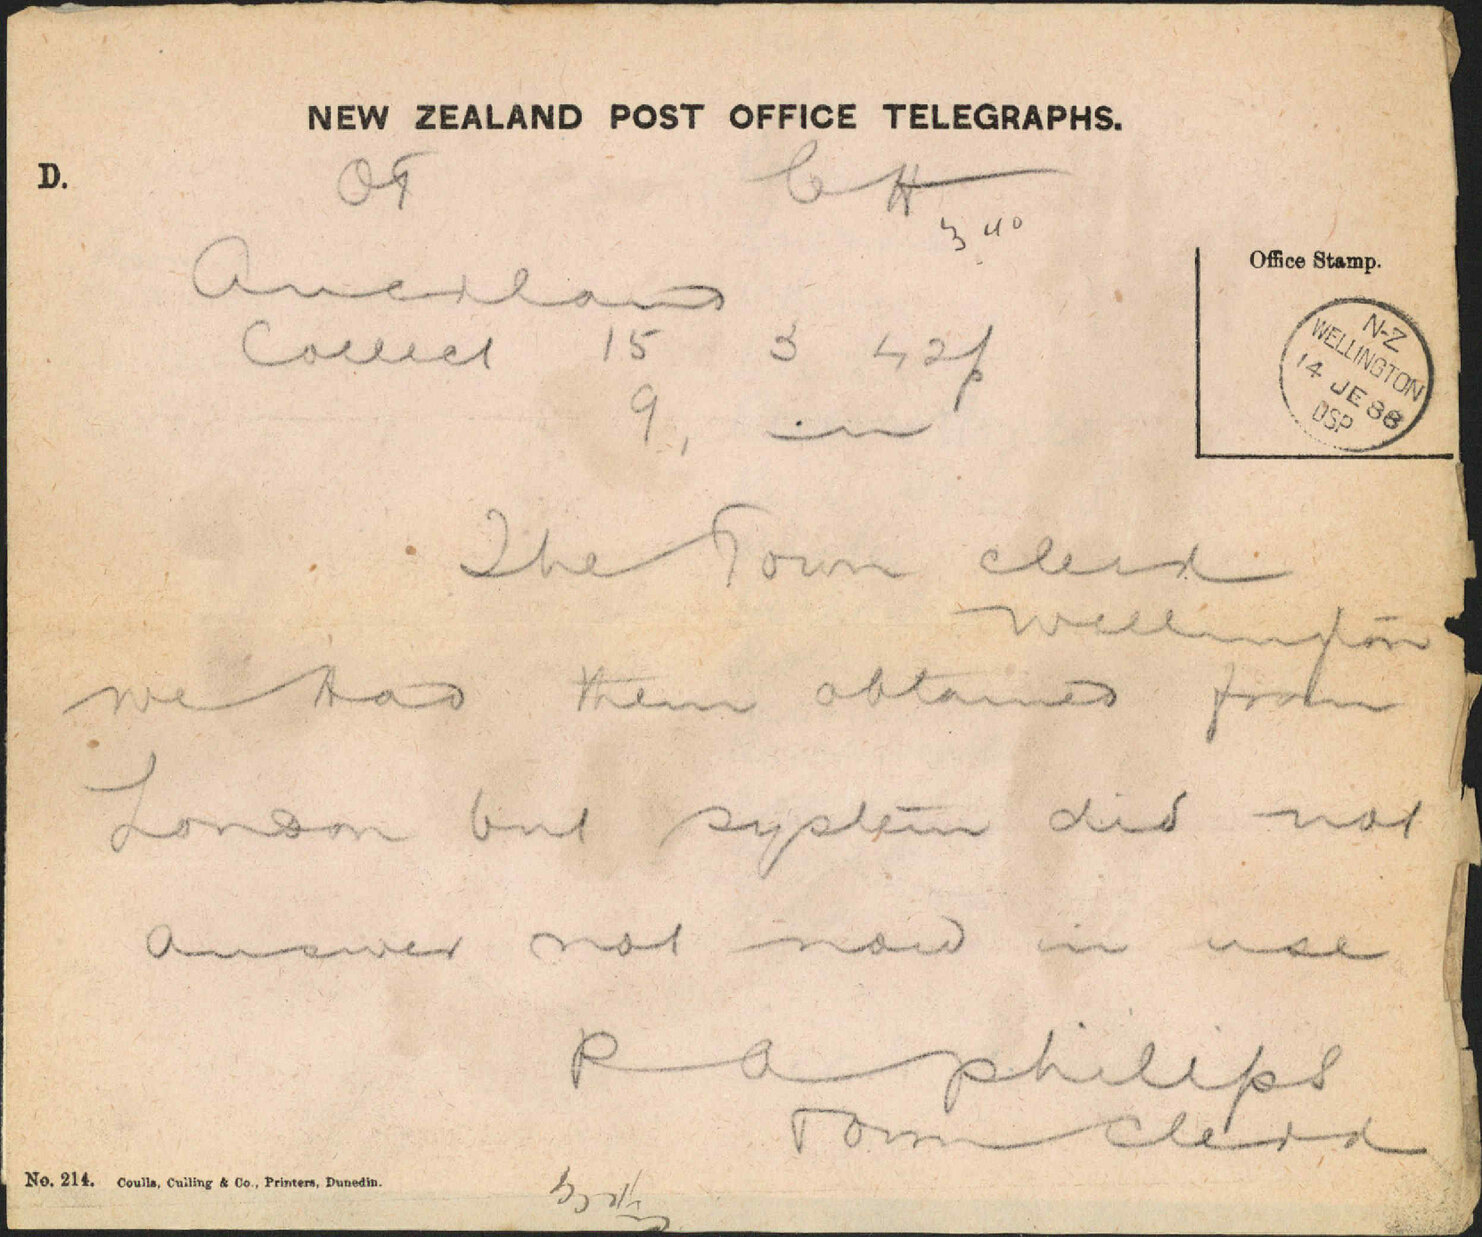 NEW ZEALAND POST OFFICE TELEGRAPHS.
D.
Office Stamp.
N-Z
WELLINGTON
14 JE 88
DSP
Auckland
Collect 15 3 42p
9,
The Town clerk
Wellington
we had them obtained from
London but system did not
answer not now in use
P A philips
Town Clerk
No. 214. Coulls, Culling & Co., Printers, Dunedin.